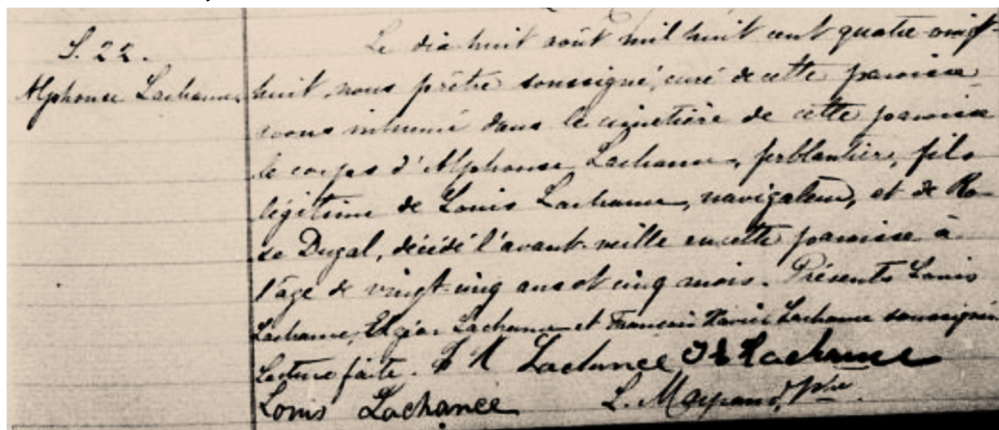 S. 22.
Alphonse Lachance
Le dix-huit août mil huit cent quatre-vingt-
huit, nous prêtre soussigné, curé de cette paroisse
avons inhumé dans le cimetière de cette paroisse
le corps d'Alphonse Lachance, ferblantier, fils
légitime de Louis Lachance, navigateur, et de Ro-
se Dugal, décédé l'avant-veille en cette paroisse à
l'âge de vingt-cinq ans et cinq mois. Présents Louis
Lachance, Elzéar Lachance et François Xavier Lachance soussignés
Lecture faite. Lachance Lachance
Louis Lachance L. Mayrand, Ptre